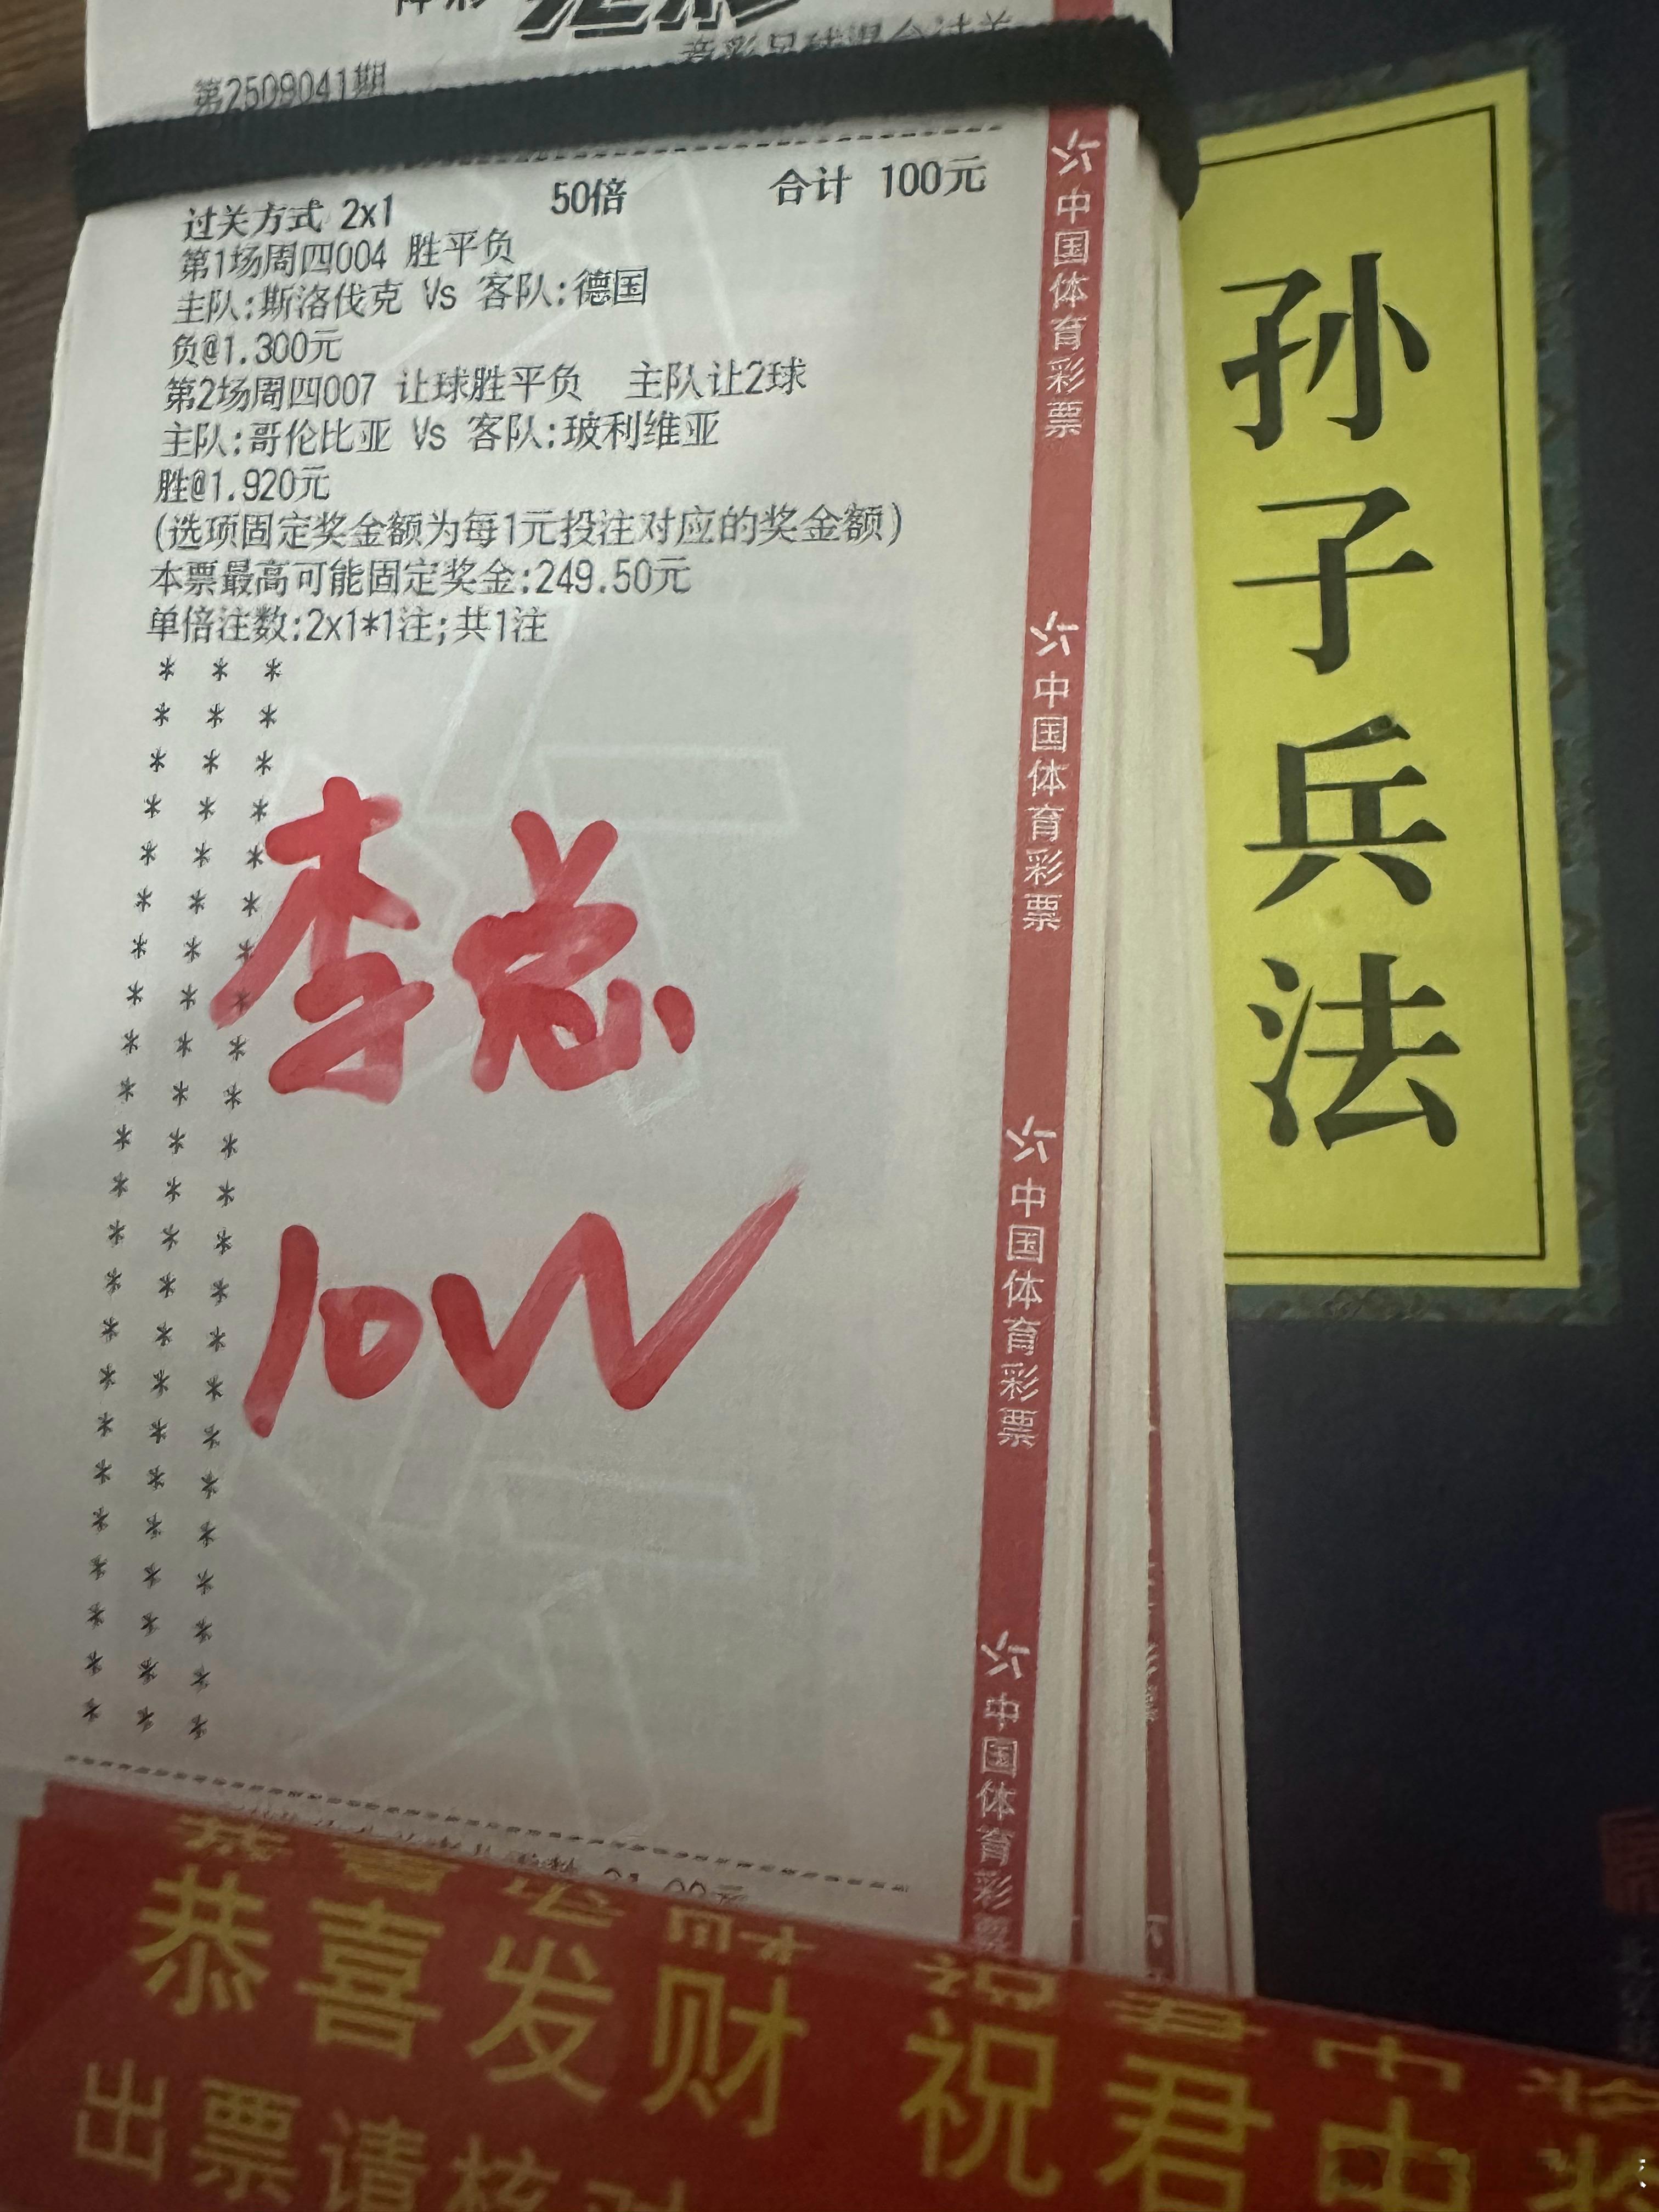 第2509041期
过关方式 2x1 50倍 合计 100元
第1场周四004 胜平负
主队:斯洛伐克 Vs 客队:德国
负@1.300元
第2场周四007 让球胜平负 主队让2球
主队:哥伦比亚 Vs 客队:玻利维亚
胜@1.920元
(选项固定奖金额为每1元投注对应的奖金额)
本票最高可能固定奖金:249.50元
单倍注数:2x1*1注;共1注
李总
10W
中国体育彩票
中国体育彩票
中国体育彩票
中国体育彩票
孙子兵法
恭喜发财 祝君中
出票请核对